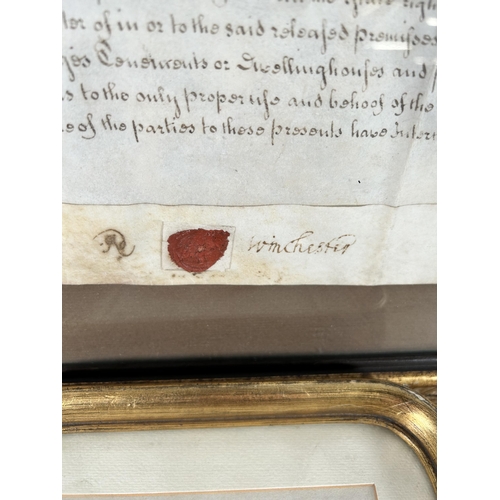 of in or to the said released premises
Tenements or Dwellinghouses and
to the only proper use and behoof of the
of the parties to these presents have
Winchester